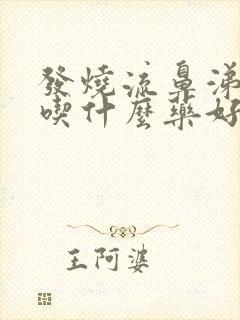 發燒流鼻涕
喫什麼藥好
王阿婆